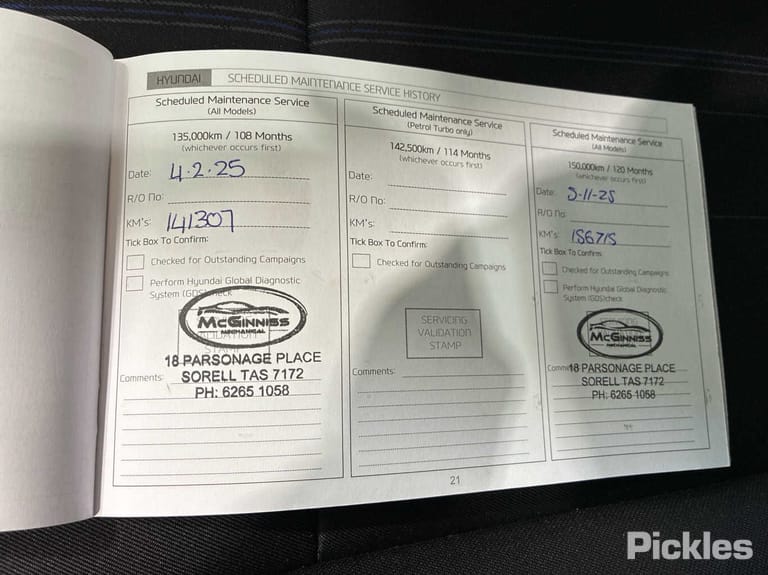 HYUNDAI SCHEDULED MAINTENANCE SERVICE HISTORY
Scheduled Maintenance Service
(All Models)
135,000km / 108 Months
(whichever occurs first)
Date: 4.2.25
R/O No:
KM's: 141307
Tick Box To Confirm:
Checked for Outstanding Campaigns
Perform Hyundai Global Diagnostic
System (GDS)check
McGINNISS
MECHANICAL
VALIDATION
STAMP
18 PARSONAGE PLACE
SORELL TAS 7172
PH: 6265 1058
Comments:
Scheduled Maintenance Service
(Petrol Turbo only)
142,500km / 114 Months
(whichever occurs first)
Date:
R/O No:
KM's:
Tick Box To Confirm:
Checked for Outstanding Campaigns
SERVICING
VALIDATION
STAMP
Comments:
Scheduled Maintenance Service
(All Models)
150,000km / 120 Months
(whichever occurs first)
Date: 5-11-25
R/O No:
KM's: 156715
Tick Box To Confirm:
Checked for Outstanding Campaigns
Perform Hyundai Global Diagnostic
System (GDS)check
McGINNISS
MECHANICAL
18 PARSONAGE PLACE
SORELL TAS 7172
PH: 6265 1058
21
Pickles